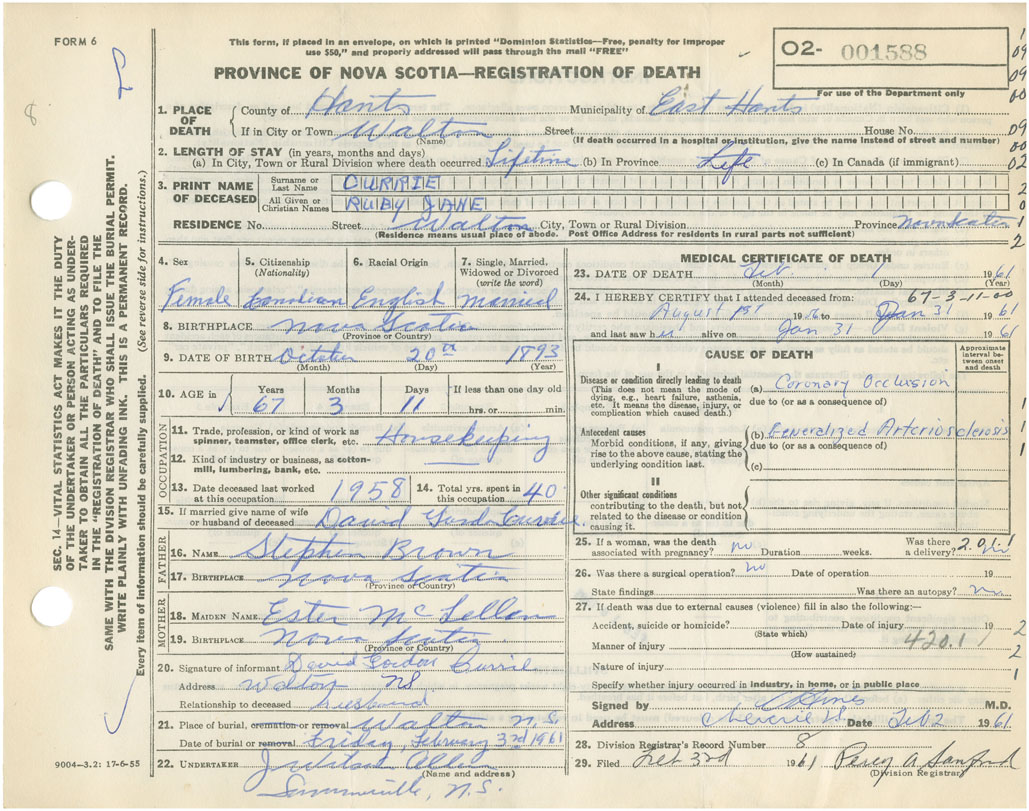 FORM 6
This form, if placed in an envelope, on which is printed "Dominion Statistics—Free, penalty for improper
use $50," and properly addressed will pass through the mail "FREE"
PROVINCE OF NOVA SCOTIA—REGISTRATION OF DEATH
O2- 001588
For use of the Department only
8
1. PLACE OF DEATH County of Hants Municipality of East Hants
If in City or Town Walton Street House No.
(Name) (If death occurred in a hospital or institution, give the name instead of street and number)
2. LENGTH OF STAY (in years, months and days)
(a) In City, Town or Rural Division where death occurred Lifetime (b) In Province Life (c) In Canada (if immigrant)
3. PRINT NAME OF DECEASED Surname or Last Name CURRIE
All Given or Christian Names RUBY JANE
RESIDENCE No. Street Walton City, Town or Rural Division Province Nova Scotia
(Residence means usual place of abode. Post Office Address for residents in rural parts not sufficient)
4. Sex 5. Citizenship (Nationality) 6. Racial Origin 7. Single, Married, Widowed or Divorced (write the word)
Female Canadian English Married
8. BIRTHPLACE Nova Scotia
(Province or Country)
9. DATE OF BIRTH October 20th 1893
(Month) (Day) (Year)
10. AGE in Years Months Days If less than one day old
67 3 11 hrs. or min.
OCCUPATION
11. Trade, profession, or kind of work as
spinner, teamster, office clerk, etc. Housekeeping
12. Kind of industry or business, as cotton-
mill, lumbering, bank, etc.
13. Date deceased last worked at this occupation 1958 14. Total yrs. spent in this occupation 40
15. If married give name of wife
or husband of deceased David Currie
FATHER
16. NAME Stephen Brown
17. BIRTHPLACE Nova Scotia
(Province or Country)
MOTHER
18. MAIDEN NAME Ester McLellan
19. BIRTHPLACE Nova Scotia
(Province or Country)
20. Signature of informant David Gordon Currie
Address Walton NS
Relationship to deceased husband
21. Place of burial, cremation or removal Walton N.S.
Date of burial or removal Friday, February 3rd 1961
22. UNDERTAKER J Wilson Allen
(Name and address)
N.S.
9004—3.2: 17-6-55
MEDICAL CERTIFICATE OF DEATH
23. DATE OF DEATH Feb 1 1961
(Month) (Day) (Year)
67-3-11-00
24. I HEREBY CERTIFY that I attended deceased from:
August 1st 1956 to Jan 31 1961
and last saw h alive on Jan 31 1961
CAUSE OF DEATH
Approximate interval between onset and death
I
Disease or condition directly leading to death
(This does not mean the mode of
dying, e.g., heart failure, asthenia,
etc. It means the disease, injury, or
complication which caused death.)
(a) Coronary Occlusion
due to (or as a consequence of)
Antecedent causes
Morbid conditions, if any, giving
rise to the above cause, stating the
underlying condition last.
(b) Generalized Arteriosclerosis
due to (or as a consequence of)
(c)
II
Other significant conditions
contributing to the death, but not
related to the disease or condition
causing it.
25. If a woman, was the death
associated with pregnancy? no Duration weeks. Was there a delivery?
26. Was there a surgical operation? no Date of operation 19
State findings Was there an autopsy? no
27. If death was due to external causes (violence) fill in also the following:—
Accident, suicide or homicide? Date of injury 19
(State which)
Manner of injury 420.1
(How sustained)
Nature of injury
Specify whether injury occurred in industry, in home, or in public place
Signed by M.D.
Address Cheverie NS Date Feb 2 1961
28. Division Registrar's Record Number 8
29. Filed Feb 3rd 1961 Percy A Sanford
(Division Registrar)
SEC. 14—VITAL STATISTICS ACT MAKES IT THE DUTY
OF THE UNDERTAKER OR PERSON ACTING AS UNDER-
TAKER TO OBTAIN ALL THE PARTICULARS REQUIRED
IN THE "REGISTRATION OF DEATH" AND TO FILE THE
SAME WITH THE DIVISION REGISTRAR WHO SHALL ISSUE THE BURIAL PERMIT.
WRITE PLAINLY WITH UNFADING INK. THIS IS A PERMANENT RECORD.
Every item of information should be carefully supplied. (See reverse side for instructions.)